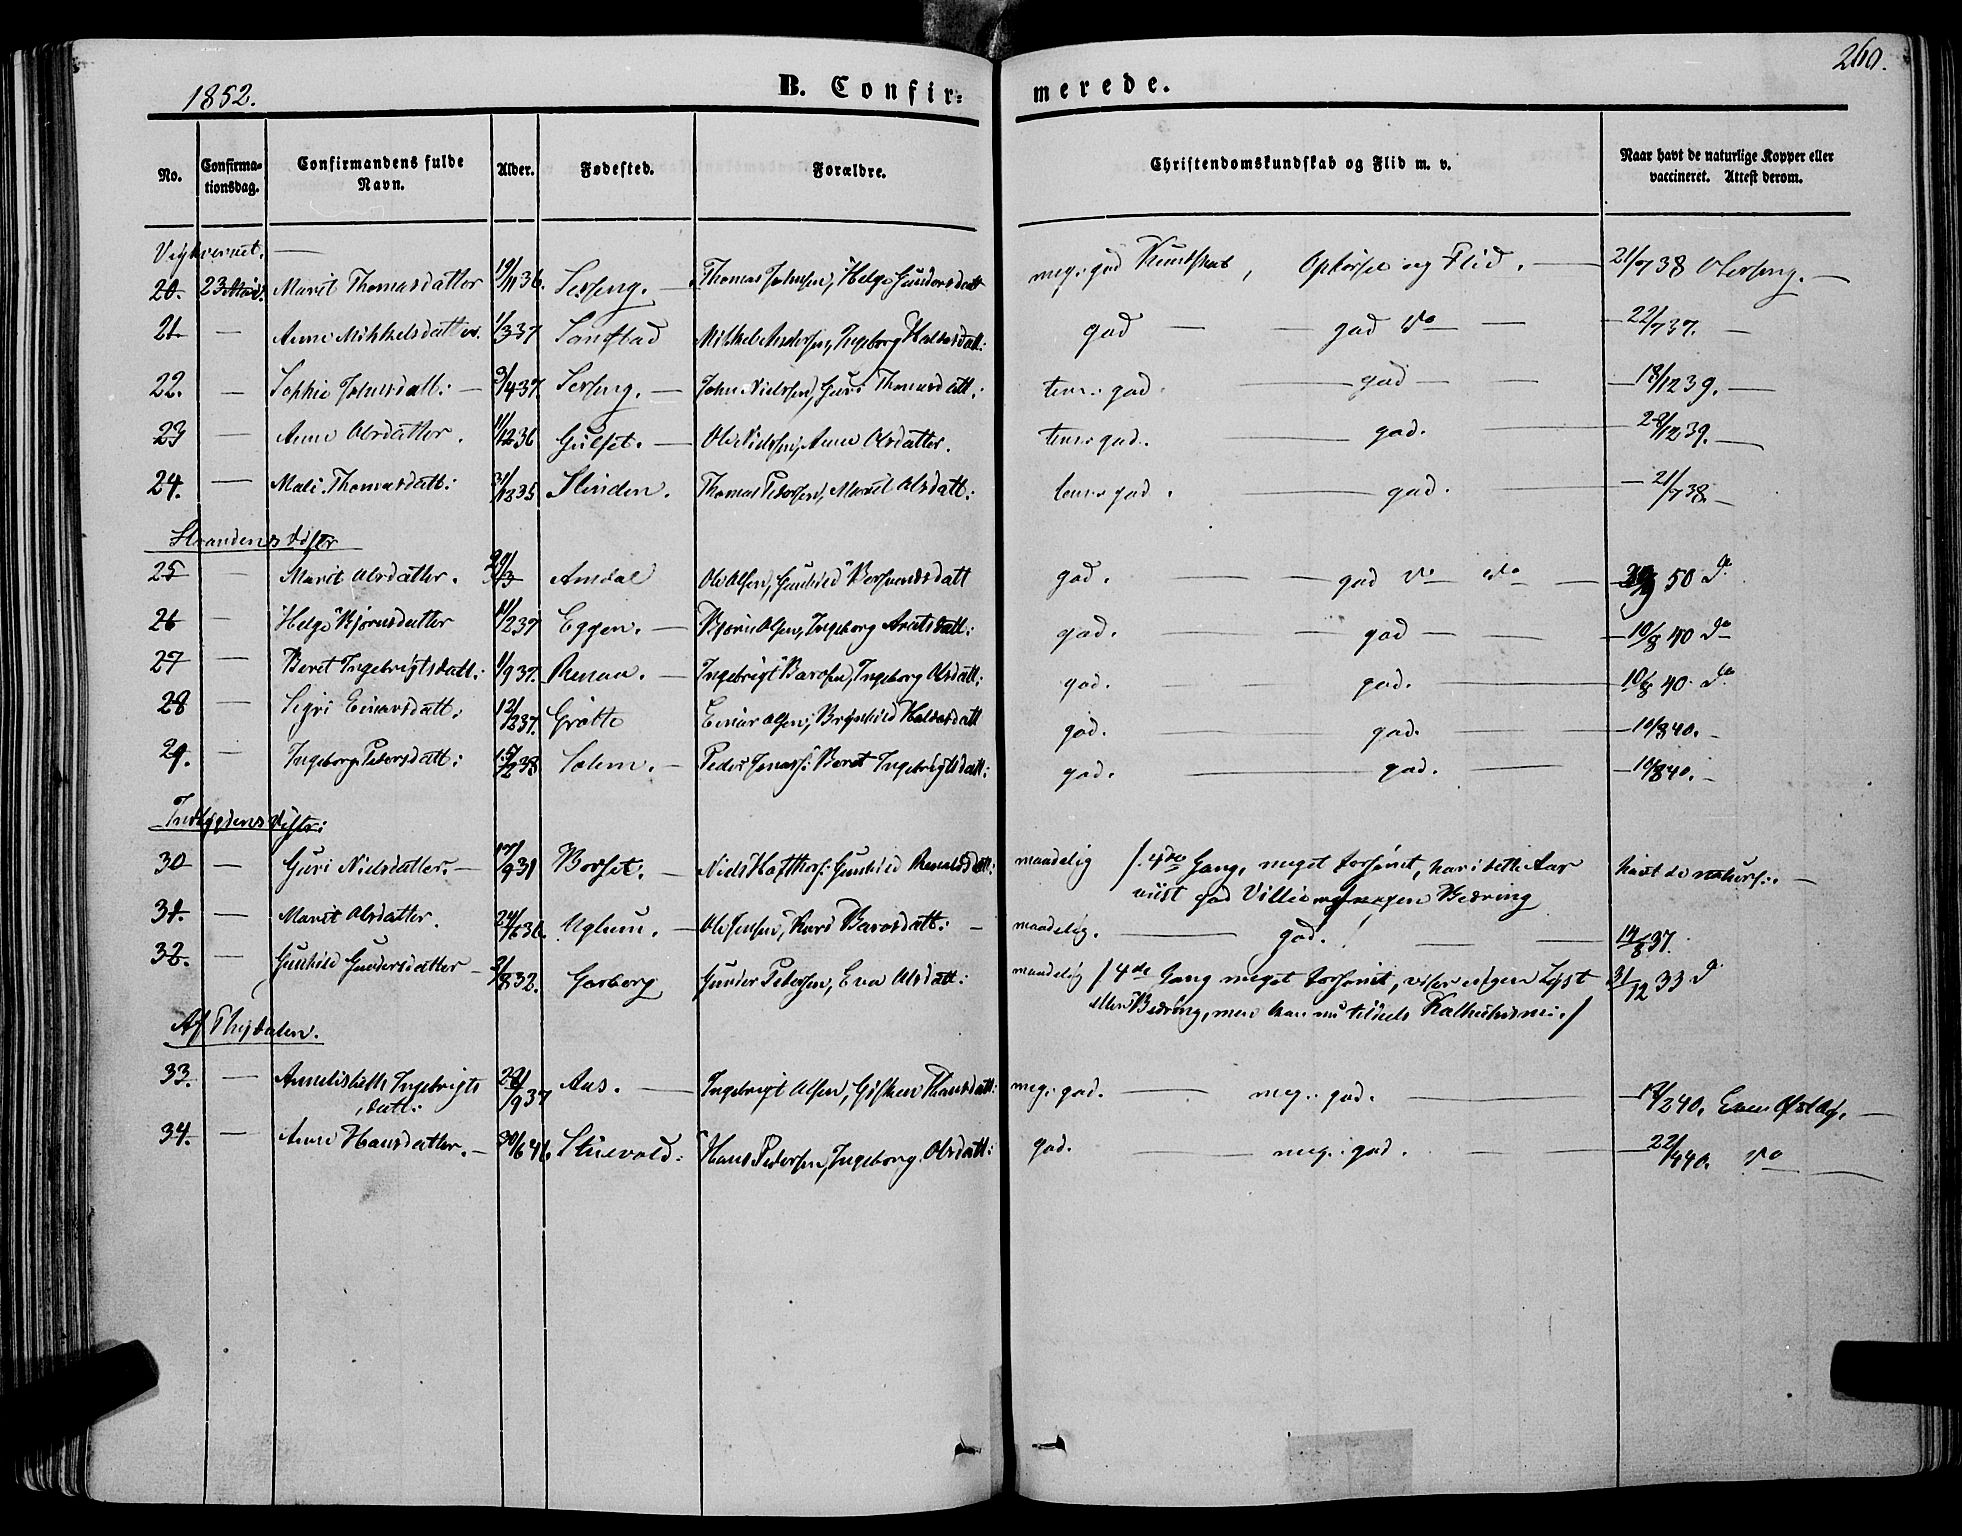 1852.
B. Confir=
merede.
260.
No.
Confirma-
tionsdag.
Confirmandens fulde
Navn.
Alder.
Fødested.
Forældre.
Christendomskundskab og Flid m. v.
Naar havt de naturlige Kopper eller
vaccineret. Attest derom.
20. 23 Mai. Marit Thomasdatter 19/11 36. Thomas Johnsen, Helge Gundersdatt meg: god Kundskab, Opførsel og Flid. 21/7 38
21 — Anne Mikkelsdatter. 1/3 37 Mikkel Andersen, Ingeborg Haldosdatt: god — god do — 22/7 37. —
22. — Sophie Johnsdatt: — 3/4 37 John Nielsen, Guri Thomasdatt: god. — god — 18/12 39. —
23 — Anne Olsdatter. 11/12 36 Gulset. — Ole Nielsen, Anne Olsdatter. god. — god. 28/12 39. —
24. — Mali Thomasdatt: 31/12 35 Slinden. Thomas Pedersen, Marit Olsdatt: god. — god. — 21/7 38. —
Strandens Distr
25 — Marit Olsdatter. Amdal Ole Olsen, Gunhild god. — god do do — 50 do
26 — Helge Bjørnsdatter 11/2 37 Eggen. — Bjørn Olsen, Ingeborg god. — god — 10/8 40 do
27 — Beret Ingebrigtsdatt: 1/9 37. Renaa. — Ingebrigt Barosen, Ingeborg Olsdatt: god. — god. — 10/8 40 do
28 — Sigri Einarsdatt: 12/2 37. Grøtte Einar Olsen, Brynhild Haldosdatt god. — god. — 10/8 40. —
29. — Ingeborg Pedersdatt: Solem. — Peder Jonass: Beret Ingebrigtsdatt: god. — god. — 10/8 40. —
Indbygdens Distr:
30 — Guri Nielsdatter. — Borset. — Niels Gunhild maadelig /. 4de Gang, meget forsømt, har i dette Aar havt de naturl: —
viist god Villie og nogen Bedring
31. — Marit Olsdatter. 24/6 36. Uglum. — Ole Jensen, Barosdatt: — maadelig. — god. — 14/8 37.
32. — Gunhild Gundersdatter 2/8 32. Garberg Gunder Pedersen, Eva Olsdatt: maadelig / 4de Gang meget forsømt, viser ingen Lyst 31/12 33 do
eller Bedring, men kan nu tildeels /
Af Thydalen.
33. — Annelisbeth Ingebrigts 28/9 37 Aas. — Ingebrigt Olsen, Gisken Hansdatt: meg: god. — meg: god. — 240.
datt:
34. — Anne Hansdatter. — Stuevold. Hans Pedersen, Ingeborg Olsdatt: god. — meg: god. — 22/4 40. do